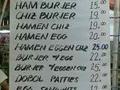 HAM BURJER 15.00
CHIZ BURJER 19.00
HAMEN CHIZ 22.00
HAMEN EGG 20.00
HAMEN EGGEN CHIZ 25.00
BURJER N EGG 22.00
BURJER N EGGEN CHIZ 25.00
DOBOL PATTIES 22.00